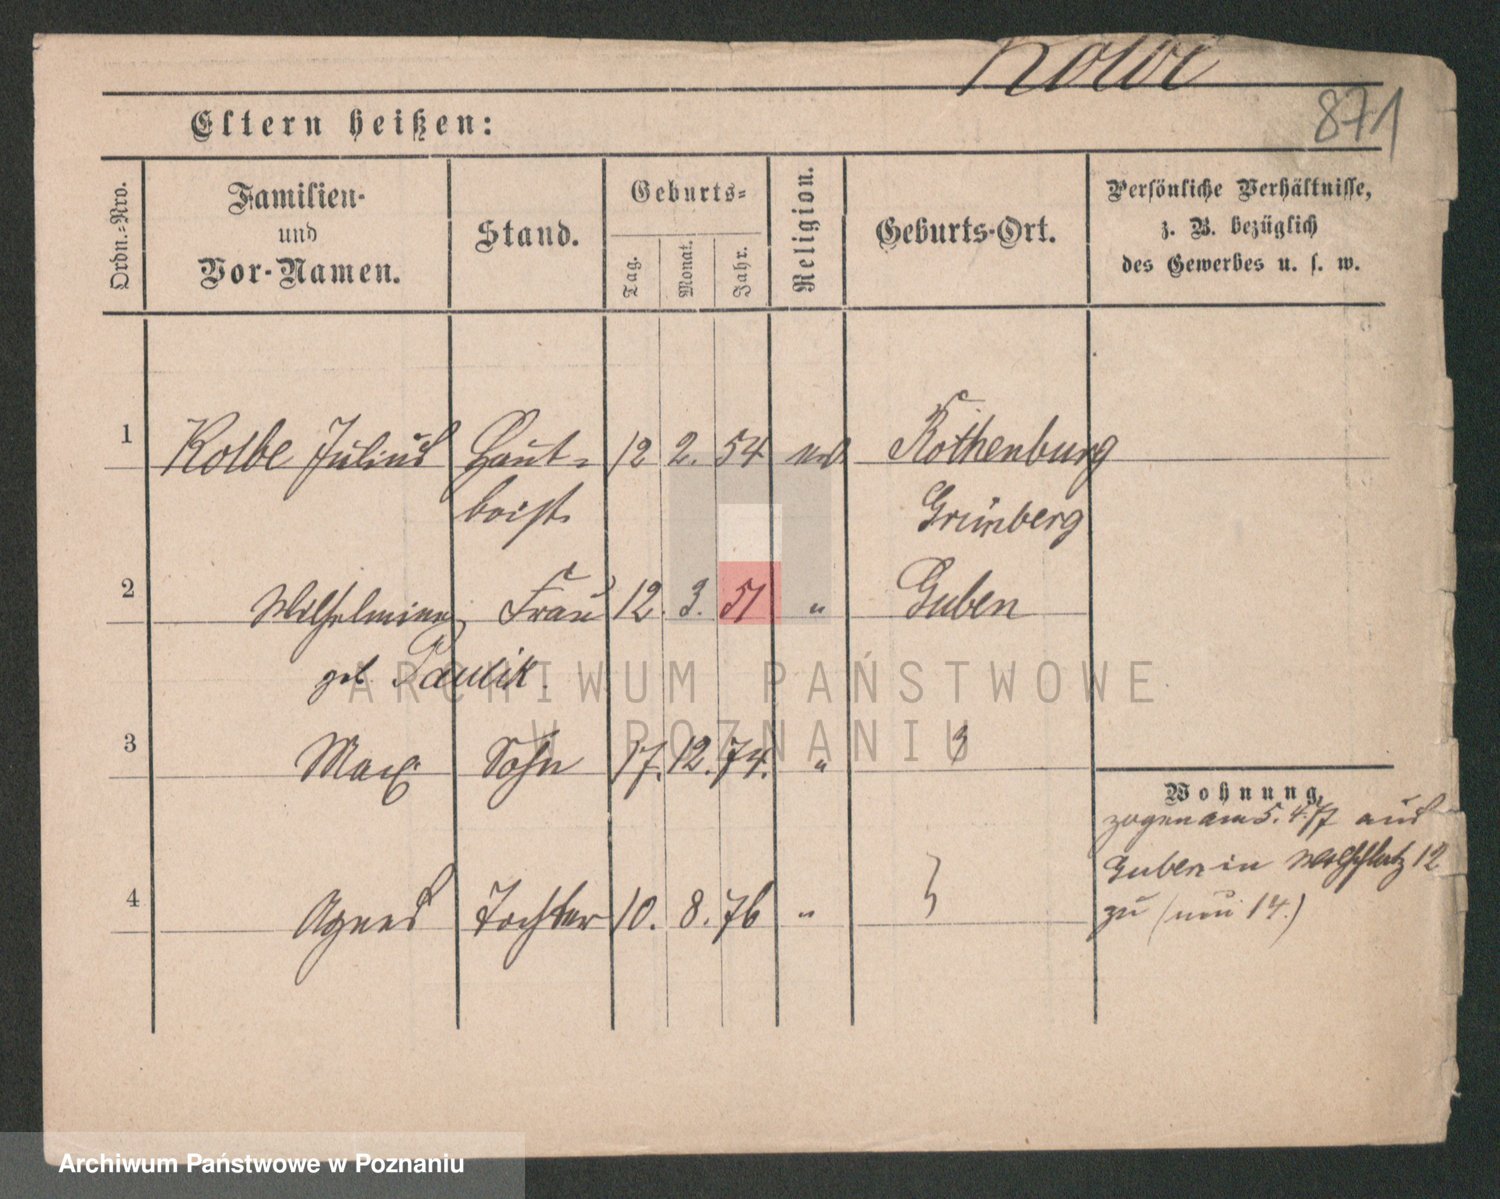 Kolbe
871
Eltern heißen:
Ordn.-Nro.
Familien-
und
Vor-Namen.
Stand.
Geburts-
Tag.
Monat.
Jahr.
Religion.
Geburts-Ort.
Persönliche Verhältnisse,
z. B. bezüglich
des Gewerbes u. s. w.
1 Kolbe Julius Haut- 12 2. 54 Rothenburg
boist. Grünberg
2 Wilhelmine Frau 12. 3. 51 " Guben
geb Paulik.
3 Max Sohn 17. 12. 74. "
4 Agnes Tochter 10. 8. 76 "
Wohnung.
zogen am 5. 4. 77 aus
Guben in 12
zu (neu 14.)
ARCHIWUM PAŃSTWOWE
W POZNANIU
Archiwum Państwowe w Poznaniu